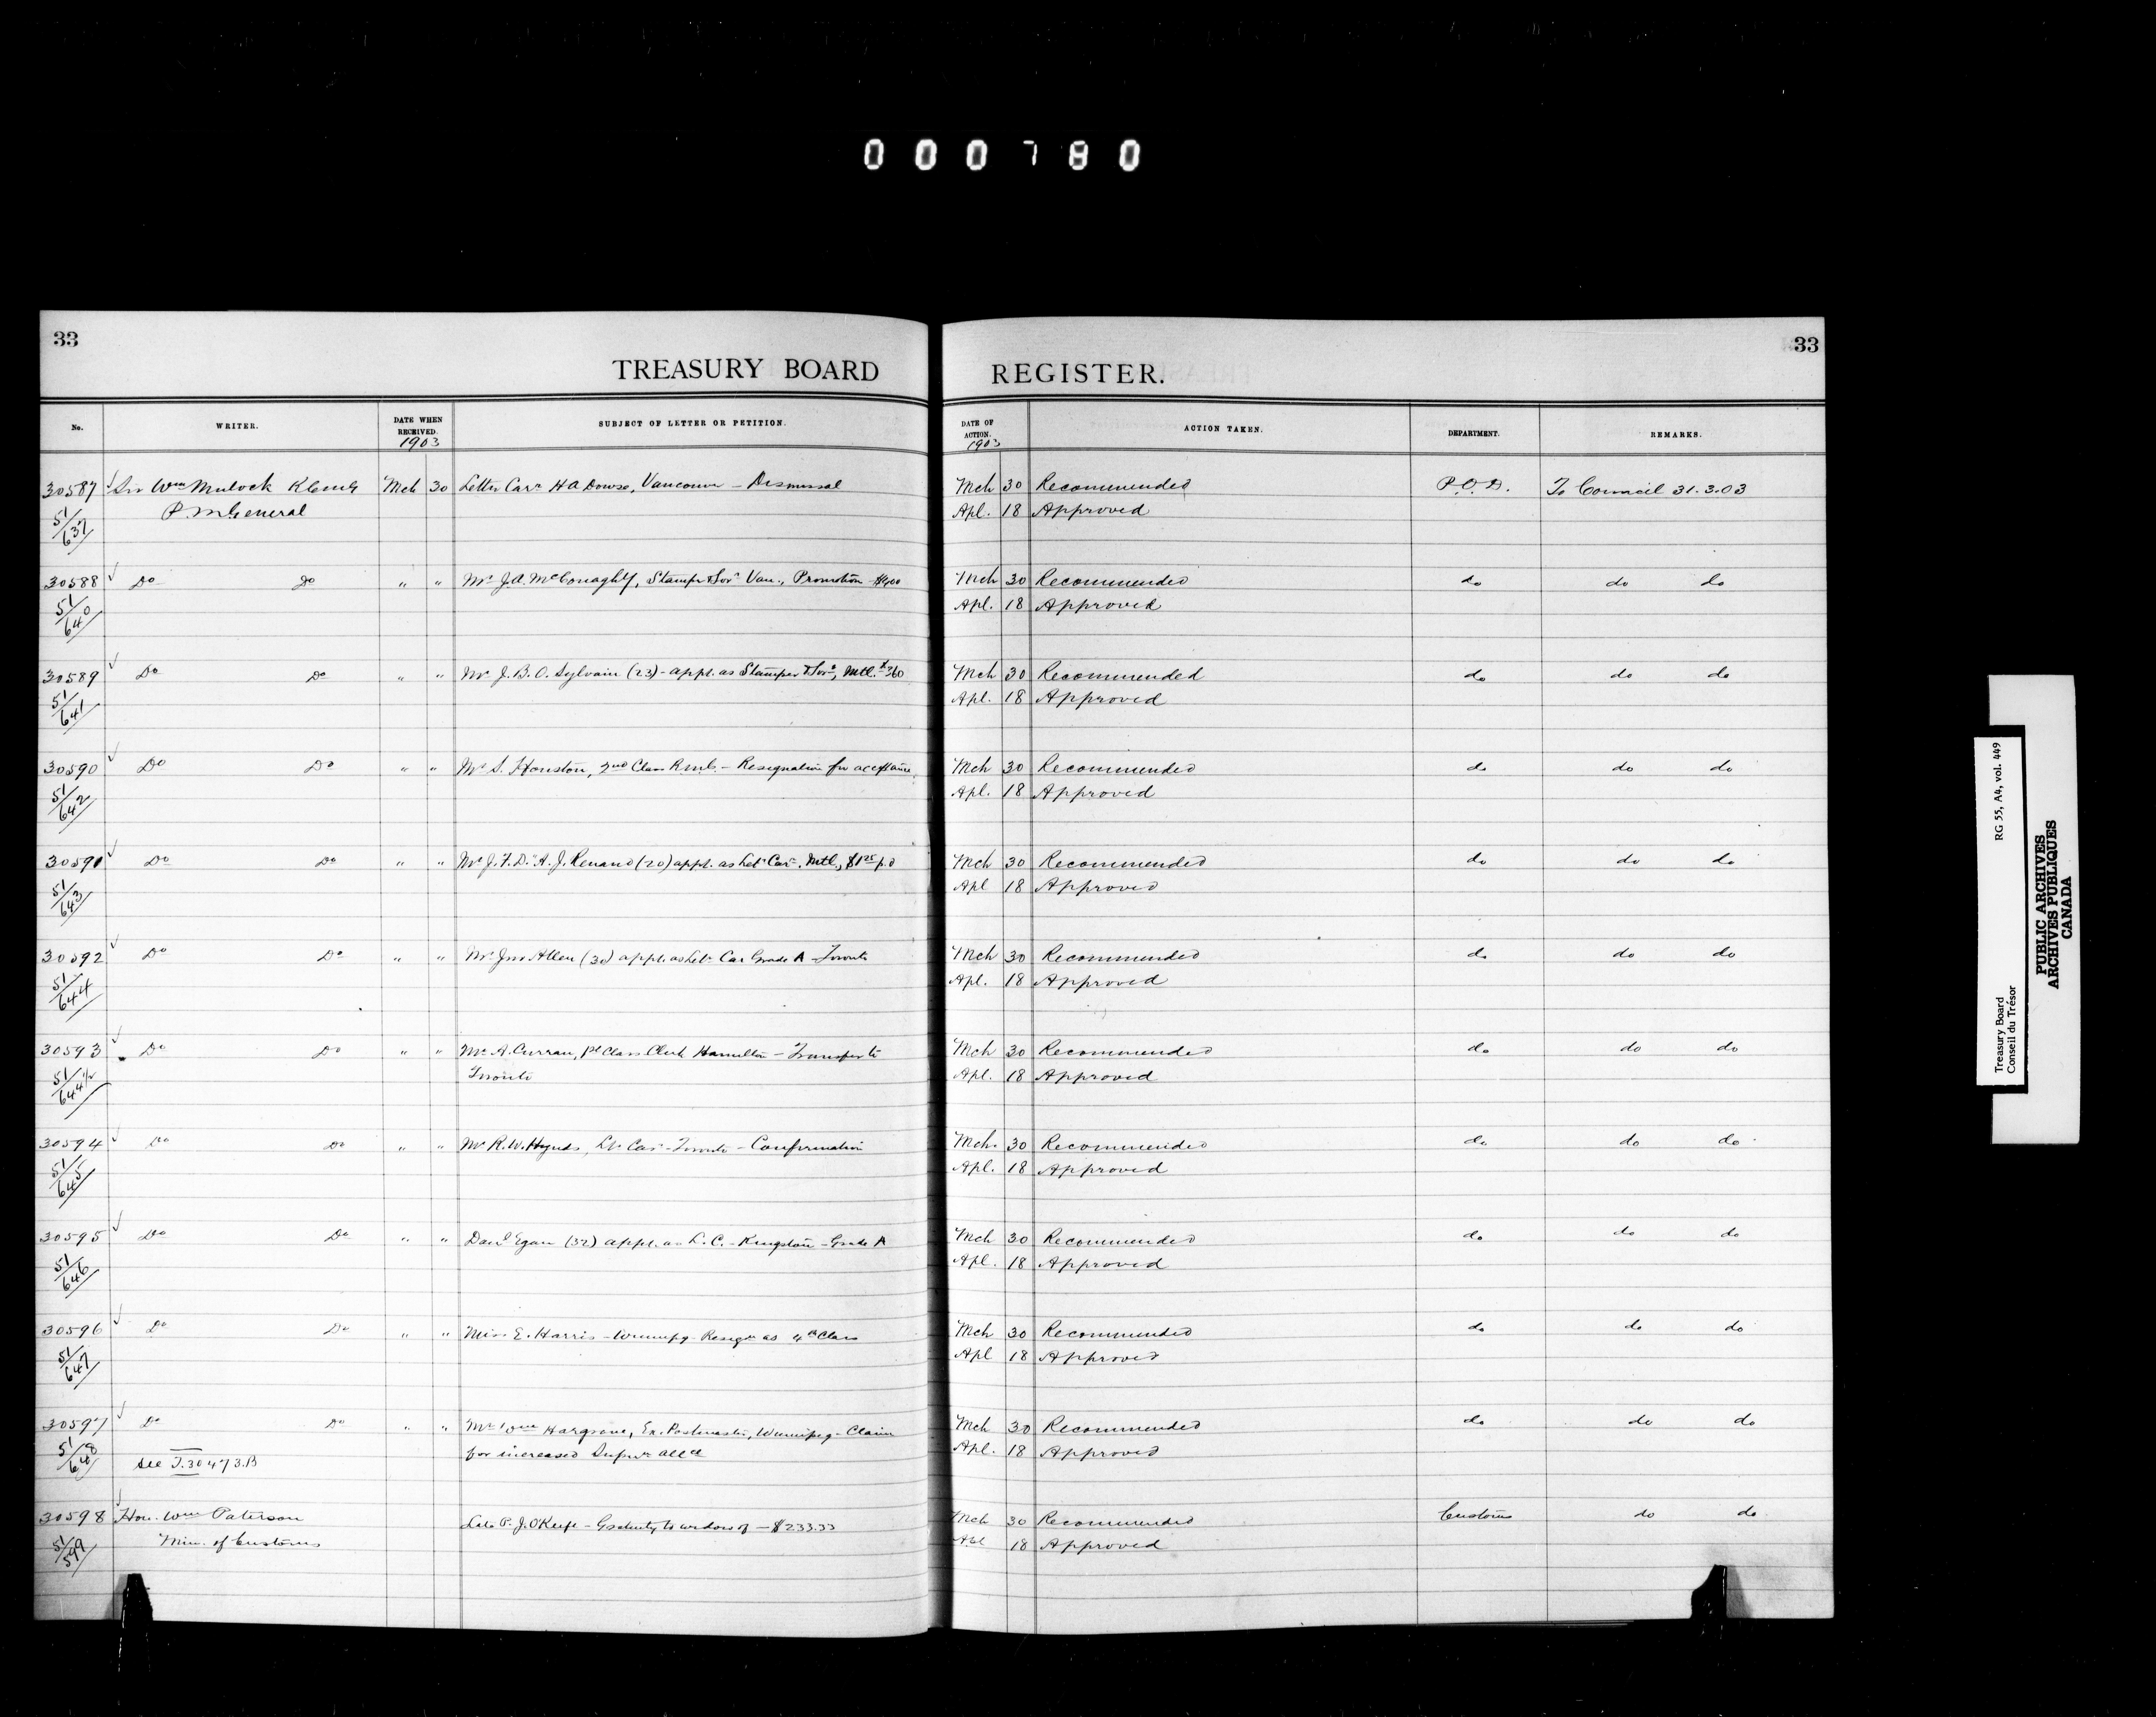 000780
33
33
TREASURY BOARD REGISTER.
No. WRITER. DATE WHEN RECEIVED. SUBJECT OF LETTER OR PETITION. DATE OF ACTION. ACTION TAKEN. DEPARTMENT. REMARKS.
1903 1903
30587 Sir Wm Mulock K.C.M.G. Mch 30 Letter Carr H A Dowse, Vancouver - Dismissal Mch 30 Recommended P.O.D. To Council 31.3.03
51/637 P.M. General Apl. 18 Approved
30588 Do Do " " Mr J.A. McConaghy, Stamper & Sorr Van., Promotion - $400 Mch 30 Recommended do do do
51/640 Apl. 18 Approved
30589 Do Do " " Mr J.B.O. Sylvain (23) - appt. as Stamper & Sorr, Mtl. $360 Mch 30 Recommended do do do
51/641 Apl. 18 Approved
30590 Do Do " " Mr S. Houston, 2nd Class R.M.C. - Resignation for acceptance Mch 30 Recommended do do do
51/642 Apl. 18 Approved
30591 Do Do " " Mr J.F.D. A.J. Renaud (20) appt. as Letr Carr. Mtl., $1.25 p.d Mch 30 Recommended do do do
51/643 Apl 18 Approved
30592 Do Do " " Mr Jno Allen (30) appt. as Letr Car Grade A - Toronto Mch 30 Recommended do do do
51/644 Apl. 18 Approved
30593 Do Do " " Mr A. Curran, 1st Class Clerk Hamilton - Transfer to Mch 30 Recommended do do do
51/644 1/2 Toronto Apl. 18 Approved
30594 Do Do " " Mr R.W. Hynds, Lr Carr - Toronto - Confirmation Mch. 30 Recommended do do do
51/645 Apl. 18 Approved
30595 Do Do " " Danl Egan (32) appt. as L.C. - Kingston - Grade A Mch 30 Recommended do do do
51/646 Apl. 18 Approved
30596 Do Do " " Miss E. Harris - Winnipg - Resign as 4th Class Mch 30 Recommended do do do
51/647 Apl 18 Approved
30597 Do Do " " Mr Wm Hargrave, Ex. Postmaster, Winnipeg - Claim Mch 30 Recommended do do do
51/648 see T.30473.B for increased Superr allce Apl. 18 Approved
30598 Hon. Wm Paterson Late P.J. O'Keefe - Gratuity to widow of - $233.33 Mch 30 Recommended Customs do do
51/599 Min. of Customs Apl 18 Approved
Treasury Board RG 55, A4, vol. 449
Conseil du Trésor
PUBLIC ARCHIVES
ARCHIVES PUBLIQUES
CANADA